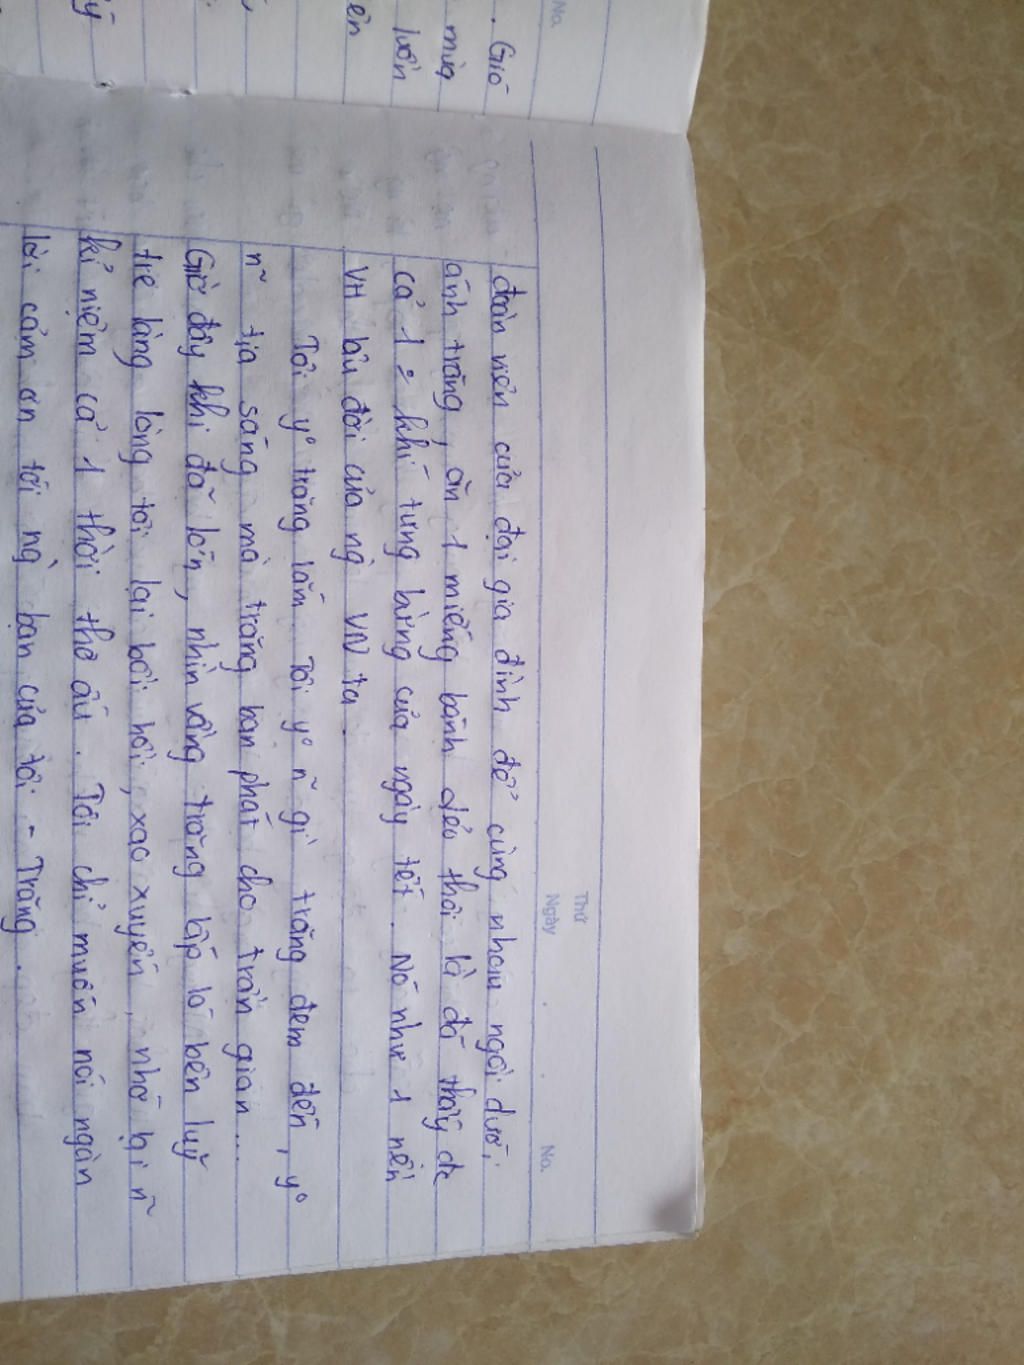 No.
Gió
mùa
luôn
ên
Thứ
Ngày
No.
đoàn viên của đại gia đình để cùng nhau ngồi dưới
ánh trăng, ăn 1 miếng bánh dẻo thôi là đã thấy đc
cả 1 khí tưng bừng của ngày tết. Nó như 1 nền
VH lâu đời của ng` VN ta.
Tôi y° trăng lắm. Tôi y° n~ gì trăng đem đến, y°
n~ tia sáng mà trăng ban phát cho trần gian...
Giờ đây khi đã lớn, nhìn vầng trăng lấp ló bên luỹ
tre làng lòng tôi lại bồi hồi, xao xuyến, nhớ lại n~
kỉ niệm cả 1 thời thơ ấu. Tôi chỉ muốn nói ngàn
lời cảm ơn tới ng` bạn của tôi - Trăng.